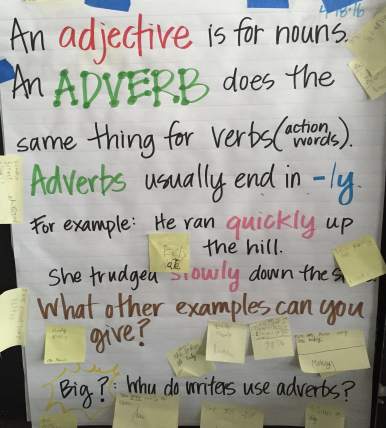 4-18-16
An adjective is for nouns.
An ADVERB does the
same thing for verbs (action words).
Adverbs usually end in -ly.
For example: He ran quickly up
the hill.
She trudged slowly down the
What other examples can you
give?
Big ?: Why do writers use adverbs?